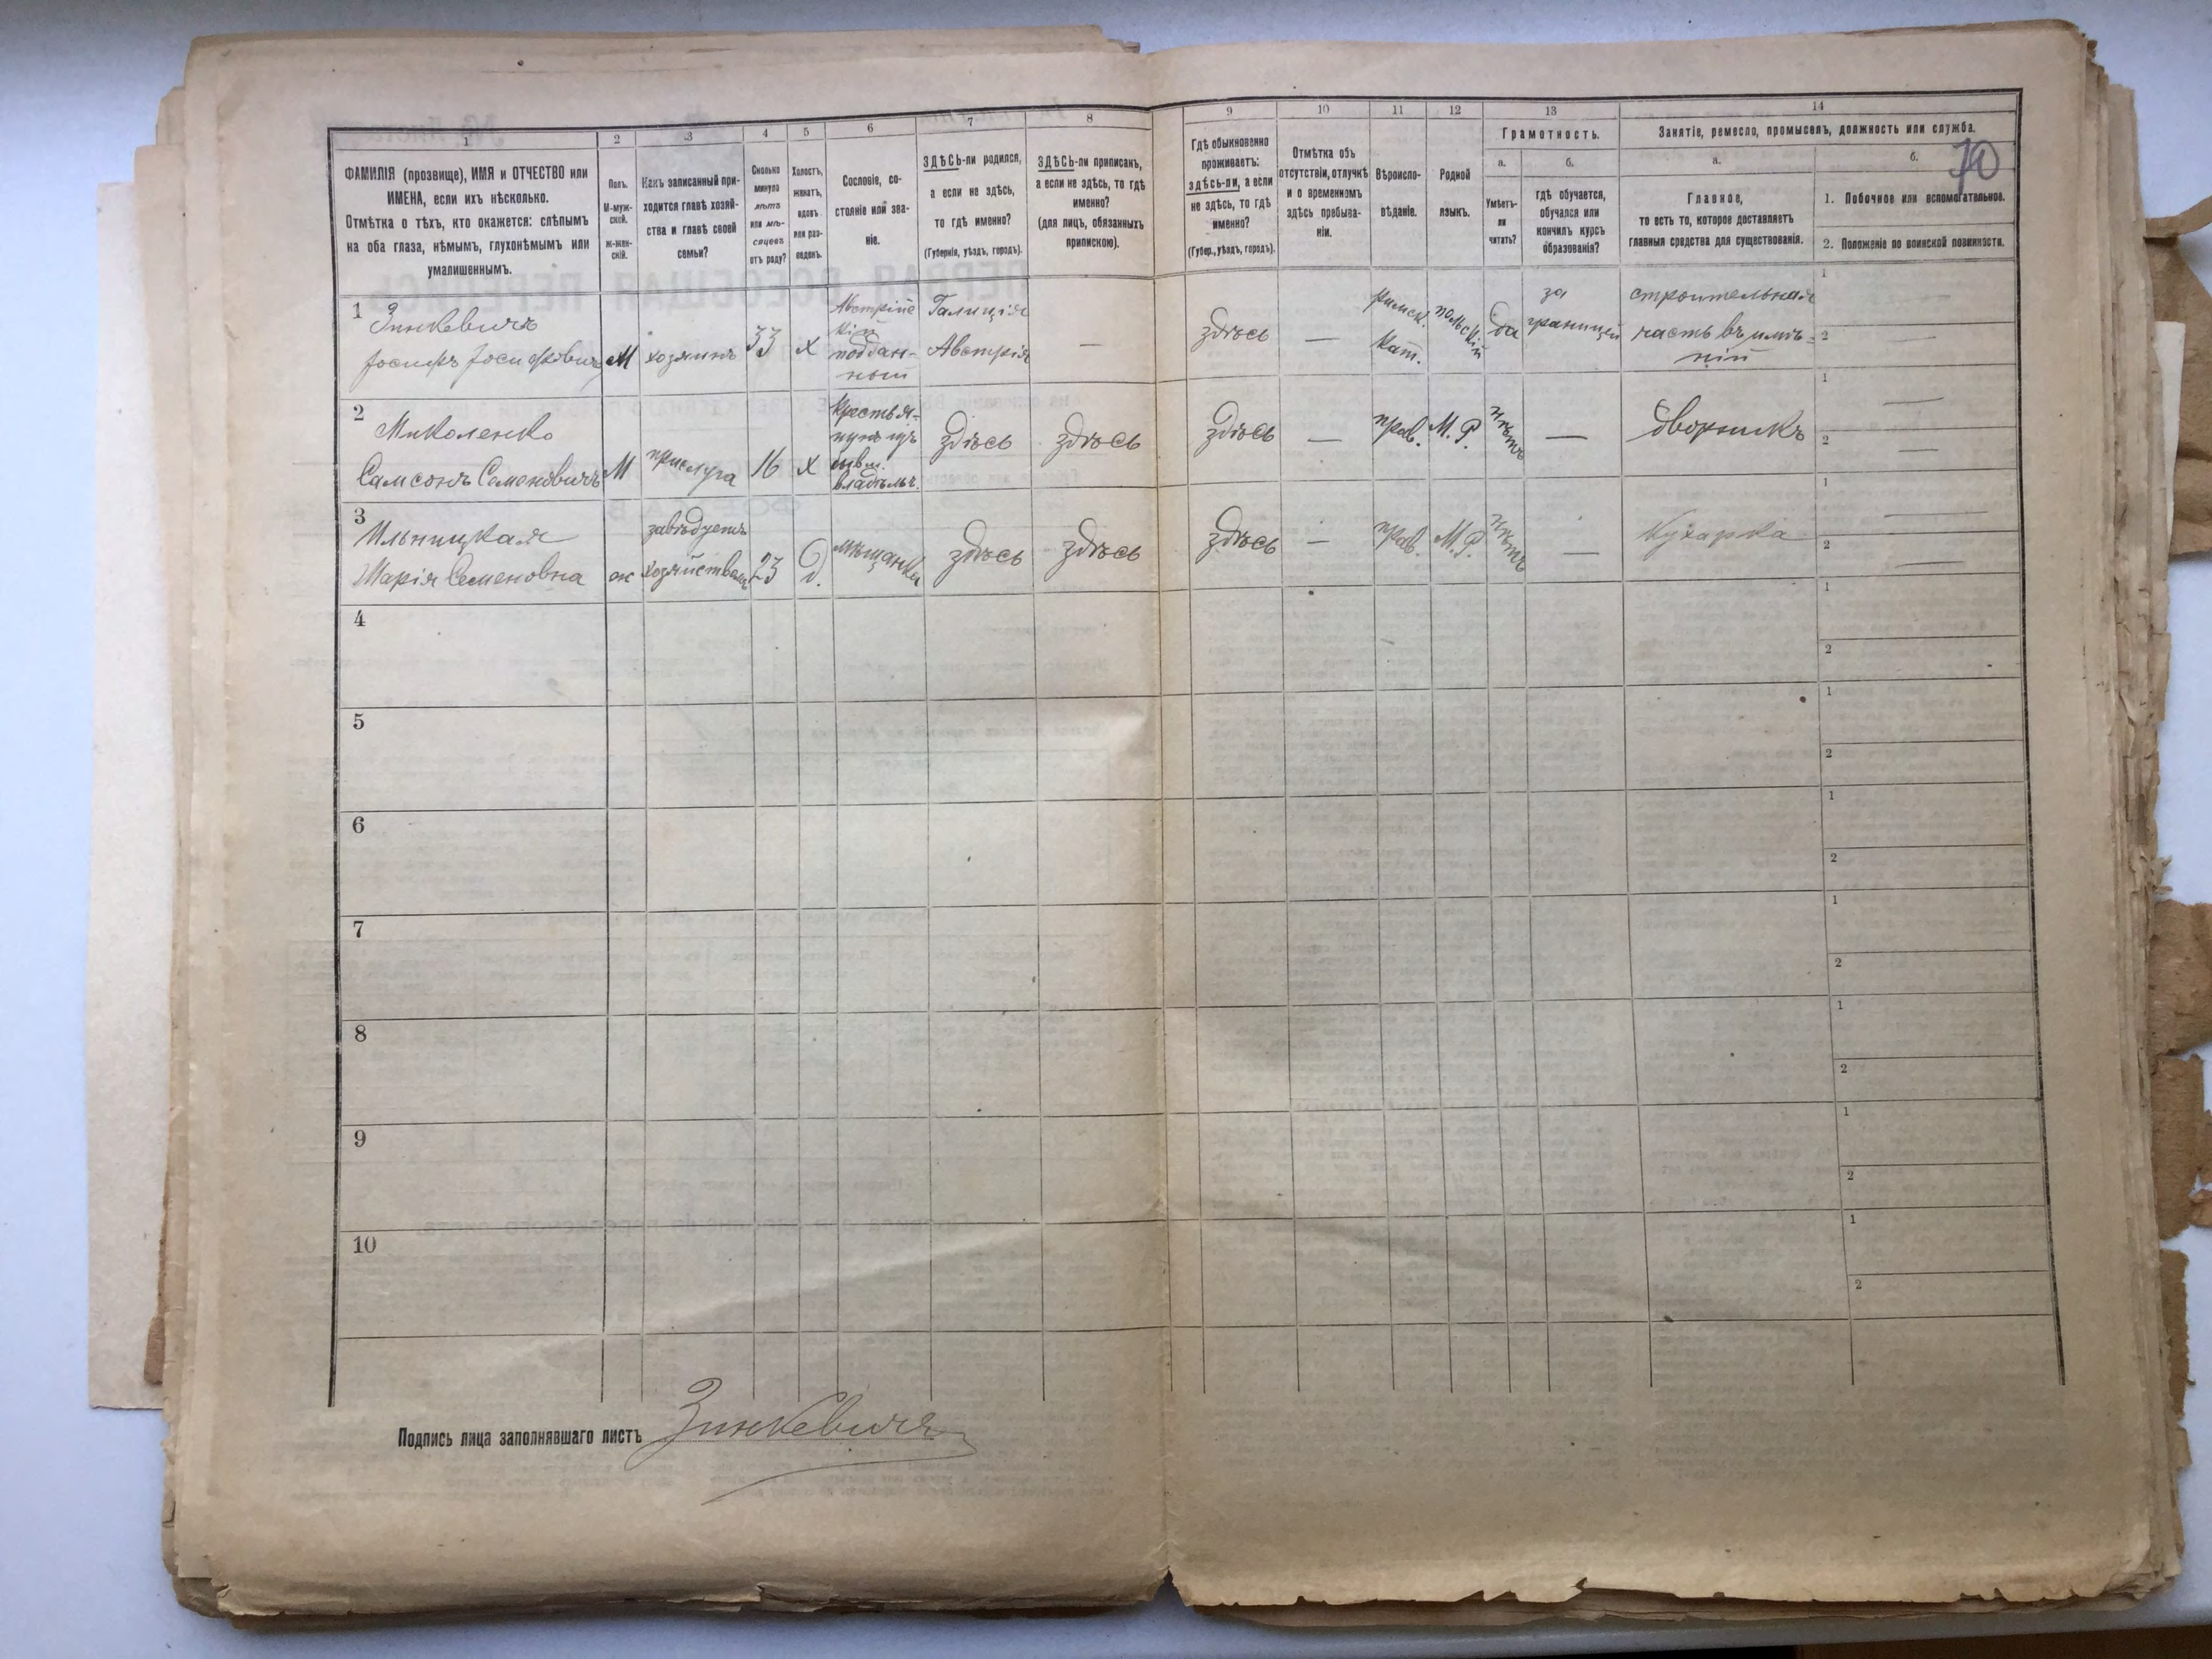 1
2
3
4
5
6
7
8
9
10
11
12
13
14
ФАМИЛІЯ (прозвище), ИМЯ и ОТЧЕСТВО или
ИМЕНА, если ихъ нѣсколько.
Отмѣтка о тѣхъ, кто окажется: слѣпымъ
на оба глаза, нѣмымъ, глухонѣмымъ или
умалишеннымъ.
Полъ.
М-муж-
ской.
Ж-жен-
скій.
Какъ записанный при-
ходится главѣ хозяй-
ства и главѣ своей
семьи?
Сколько
минуло
лѣтъ
или мѣ-
сяцевъ
отъ роду?
Холостъ,
женатъ,
вдовъ
или раз-
веденъ.
Сословіе, со-
стояніе или зва-
ніе.
ЗДѢСЬ-ли родился,
а если не здѣсь,
то гдѣ именно?
(Губернія, уѣздъ, городъ).
ЗДѢСЬ-ли приписанъ,
а если не здѣсь, то гдѣ
именно?
(для лицъ, обязанныхъ
припискою).
Гдѣ обыкновенно
проживаетъ:
здѣсь-ли, а если
не здѣсь, то гдѣ
именно?
(Губер., уѣздъ, городъ).
Отмѣтка объ
отсутствіи, отлучкѣ
и о временномъ
здѣсь пребыва-
ніи.
Вѣроиспо-
вѣданіе.
Родной
языкъ.
Грамотность.
а.
б.
Умѣетъ-
ли
читать?
гдѣ обучается,
обучался или
кончилъ курсъ
образованія?
Занятіе, ремесло, промыселъ, должность или служба.
а.
б.
70
Главное,
то есть то, которое доставляетъ
главныя средства для существованія.
1. Побочное или вспомогательное.
2. Положеніе по воинской повинности.
1
Зинкевичъ
Іосифъ Іосифовичъ
М
хозяинъ
33
х
Австрійс
кій
поддан-
ный
Галиція
Австрія
—
здѣсь
—
римск.
кат.
польскій
да
за
границей
строительная
часть въ имѣ=
ніи
1
—
2
—
2
Миколенко
Самсонъ Семеновичъ
М
прислуга
16
х
Крестья-
нинъ изъ
бывш.
владѣльч.
здѣсь
здѣсь
здѣсь
—
прав.
М. Р.
нѣтъ
—
дворникъ
1
—
2
—
3
Ильницкая
Марія Семеновна
ж
завѣдуетъ
хозяйствомъ
23
д.
мѣщанка
здѣсь
здѣсь
здѣсь
—
прав.
М. Р.
нѣтъ
—
Кухарка
1
—
2
—
4
1
2
5
1
2
6
1
2
7
1
2
8
1
2
9
1
2
10
1
2
Подпись лица заполнявшаго листъ Зинкевичъ